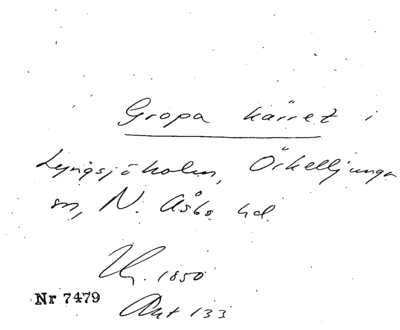 Gropa kärret i
Lyngsjöholm, Örkelljunga
sn, N. Åsbo hd.
1850
Nr 7479
Ant 133